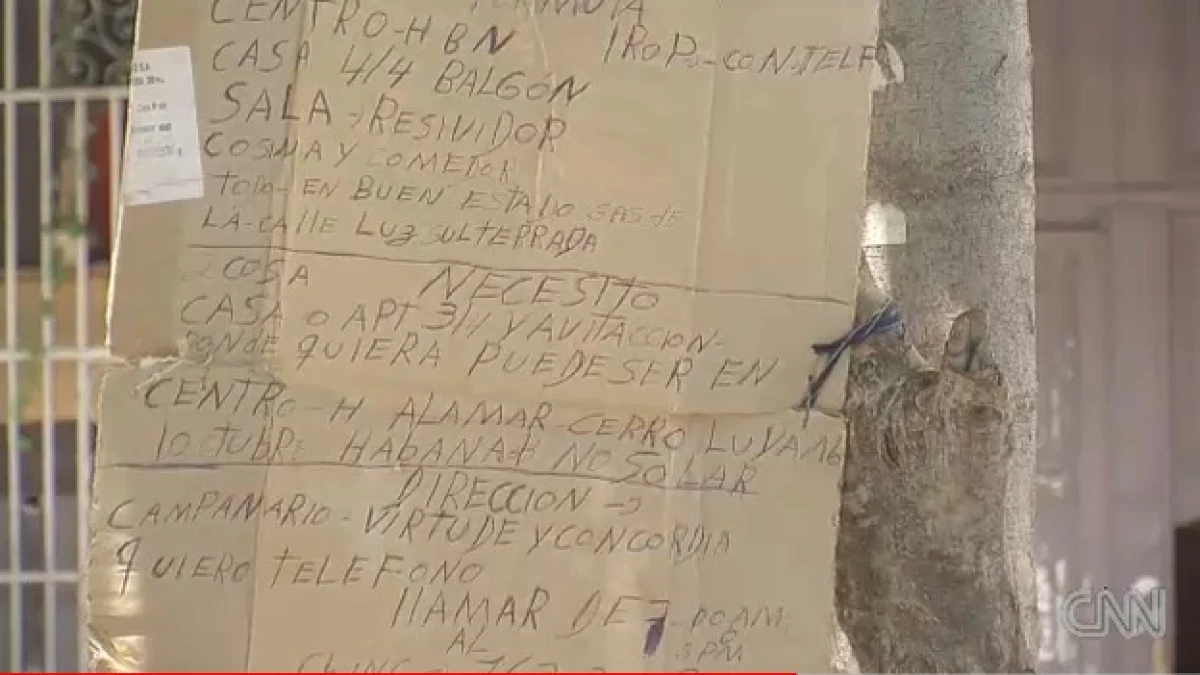 CENTRO-H BN 1RO P.-CON.TELEF
CASA 4/4 BALGÓN
SALA-y RESIVIDOR
COSINA Y COMEDOR
TODO-EN BUEN ESTADO GAS DE
LA-CALLE LUZ SULTERRADA
2 COSA NECESITO
CASA o APT 3/4 Y AVITACCION-
DONDE QUIERA PUEDE SER EN
CENTRO-H ALAMAR-CERRO, LUYANO
10 CTUBRE HABANA NO SOLAR
DIRECCION
CAMPANARIO-VIRTUDE Y CONCORDIA
QUIERO TELEFONO
LLAMAR DE 7 AM
AL PM
CNN